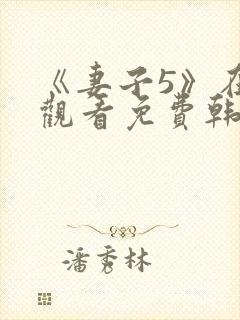 《妻子5》在
觀看免費韩
潘秀林